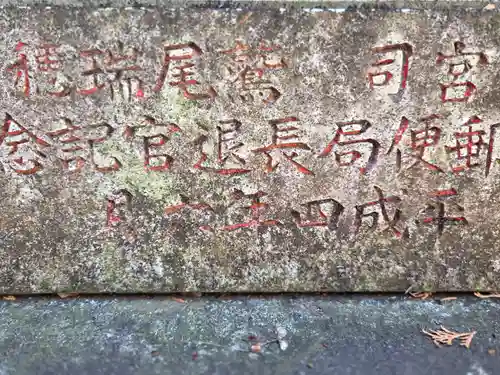 宮司　鷲尾瑞穂
郵便局長退官記念
平成四年六月